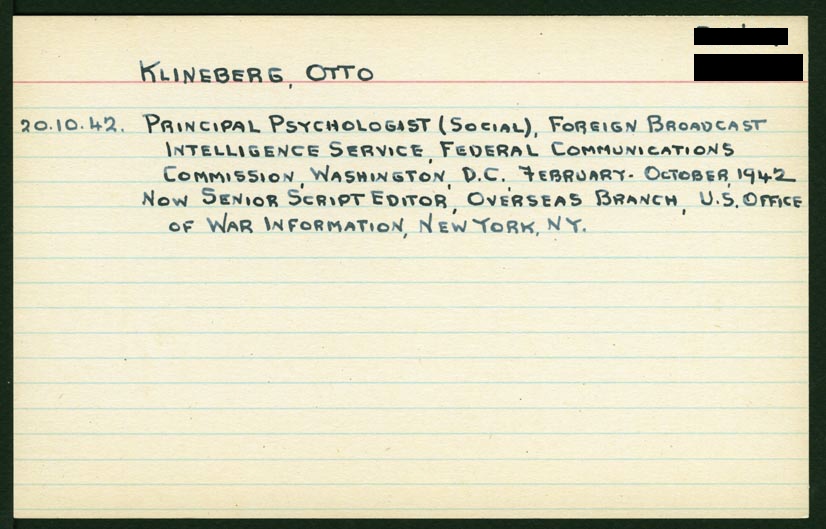 KLINEBERG, OTTO
20.10.42. PRINCIPAL PSYCHOLOGIST (SOCIAL), FOREIGN BROADCAST
INTELLIGENCE SERVICE, FEDERAL COMMUNICATIONS
COMMISSION, WASHINGTON, D.C. FEBRUARY - OCTOBER, 1942
NOW SENIOR SCRIPT EDITOR, OVERSEAS BRANCH, U.S. OFFICE
OF WAR INFORMATION, NEW YORK, NY.